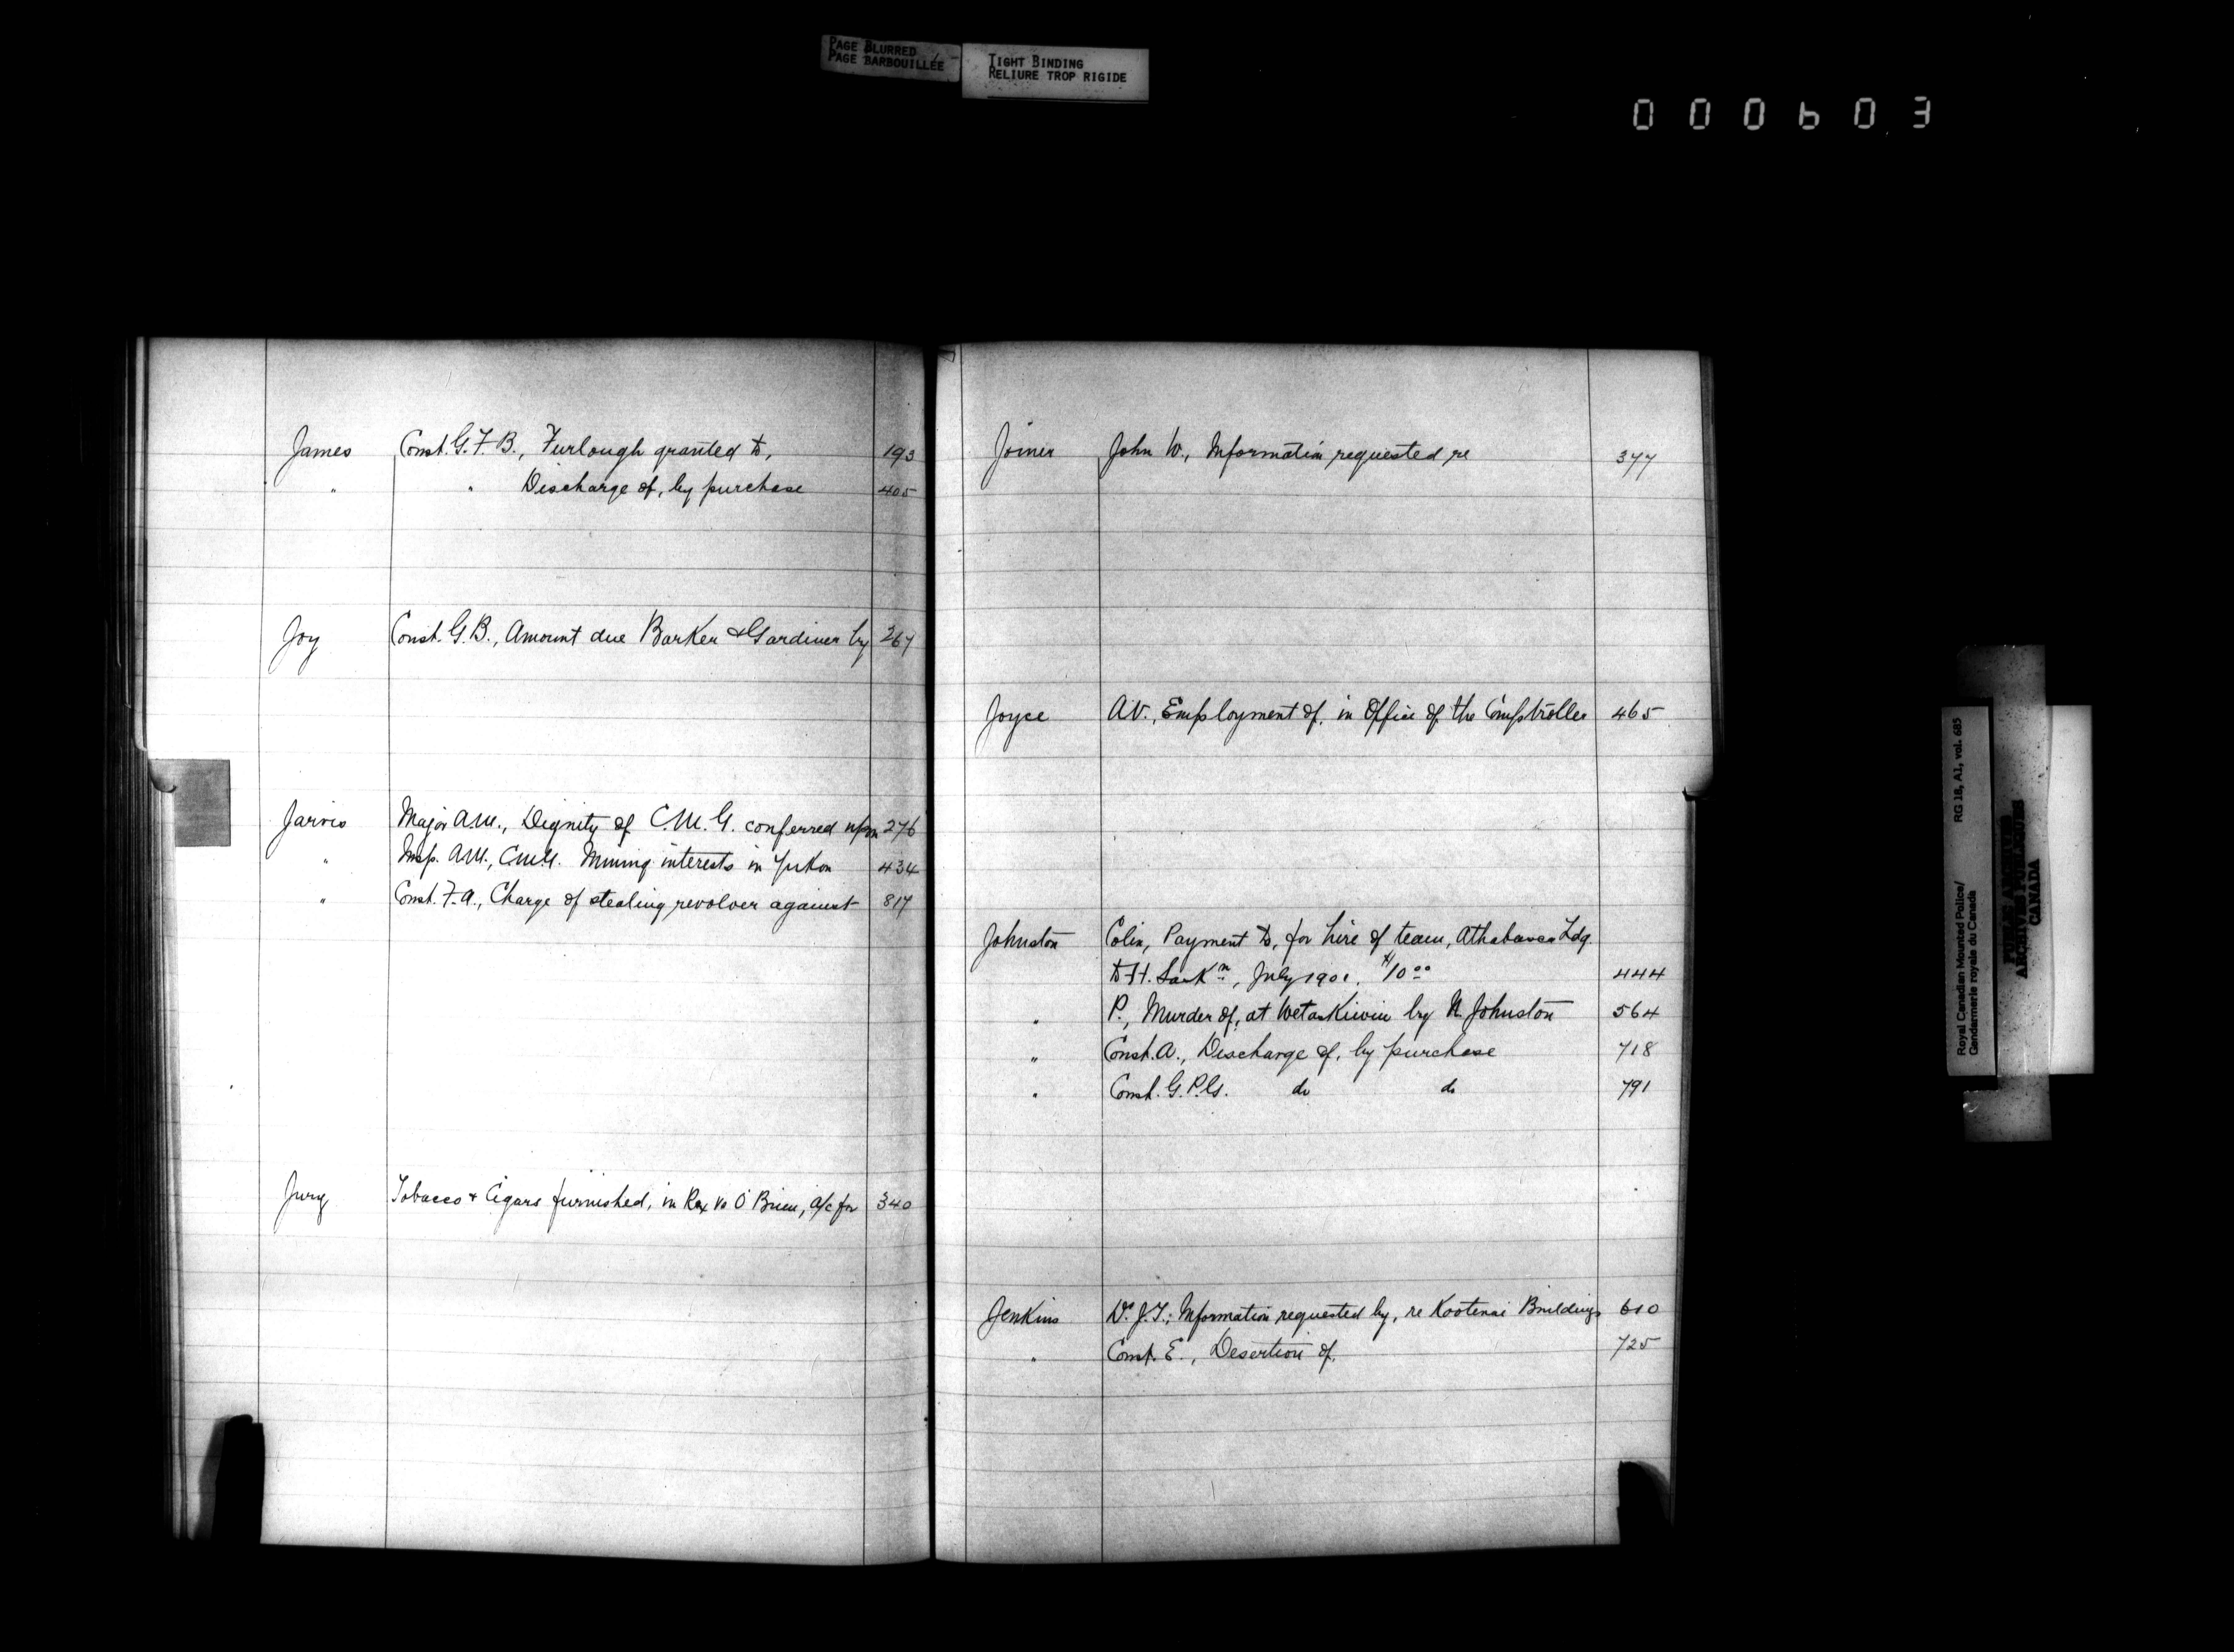 PAGE BLURRED
PAGE BARBOUILLÉE
TIGHT BINDING
RELIURE TROP RIGIDE
000603
James Const. G. F. B., Furlough granted to, 193
" " Discharge of, by purchase 405
Joy Const. G. B., Amount due Barker & Gardiner by 267
Jarvis Major A.M., Dignity of C.M.G. conferred upon 276
" Insp. A.M., C.M.G. Mining interests in Yukon 434
" Const. F. A., Charge of stealing revolver against 817
Jury Tobacco & Cigars furnished, in Rex vs O'Brien, a/c for 340
Joiner John W., Information requested re 377
Joyce A.V., Employment of, in Office of the Comptroller 465
Johnston Colin, Payment to, for hire of team, Athabasca Ldg.
to Ft. Sask n, July 1901. $10 00 444
" P., Murder of, at Wetaskiwin by N. Johnston 564
" Const. A., Discharge of, by purchase 718
" Const. G. P. G. do do 791
Jenkins Dr. J. T., Information requested by, re Kootenai Buildings 610
" Const. E., Desertion of, 725
Royal Canadian Mounted Police/
Gendarmerie royale du Canada
RG 18, A1, vol. 685
PUBLIC ARCHIVES
ARCHIVES PUBLIQUES
CANADA